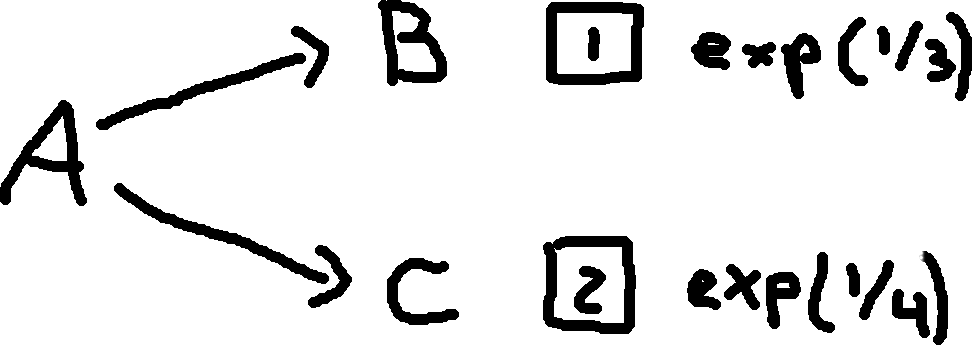 B 1 exp(1/3)
A
C 2 exp(1/4)